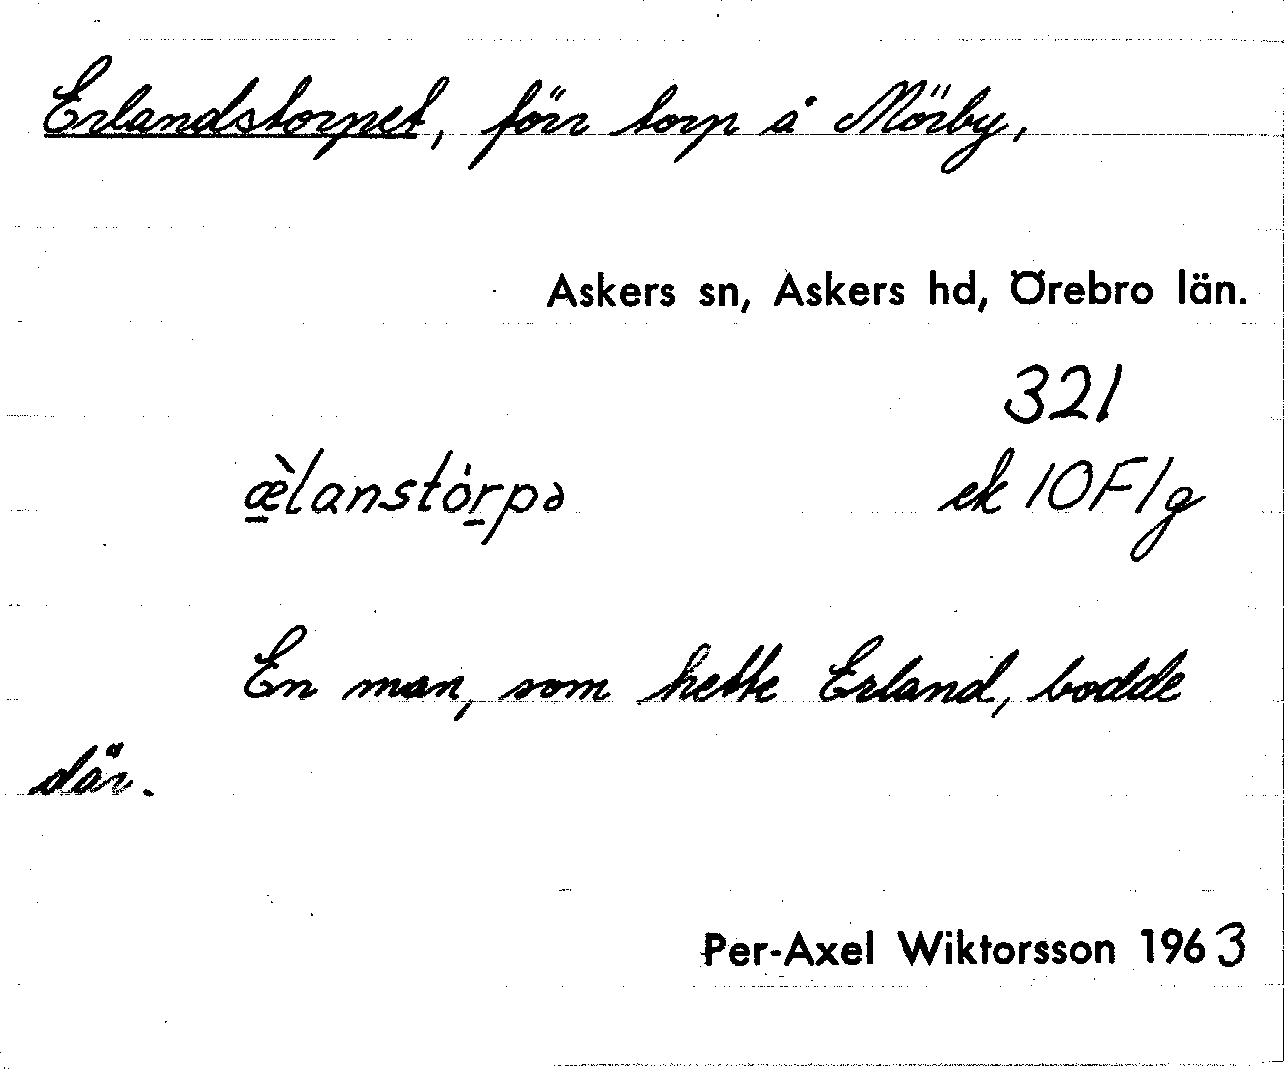 Erlandstorpet, förr torp å Mörby,
Askers sn, Askers hd, Örebro län.
321
æ̱̀lanstȯṟpə ek 10F1g
En man, som hette Erland, bodde
där.
Per-Axel Wiktorsson 1963